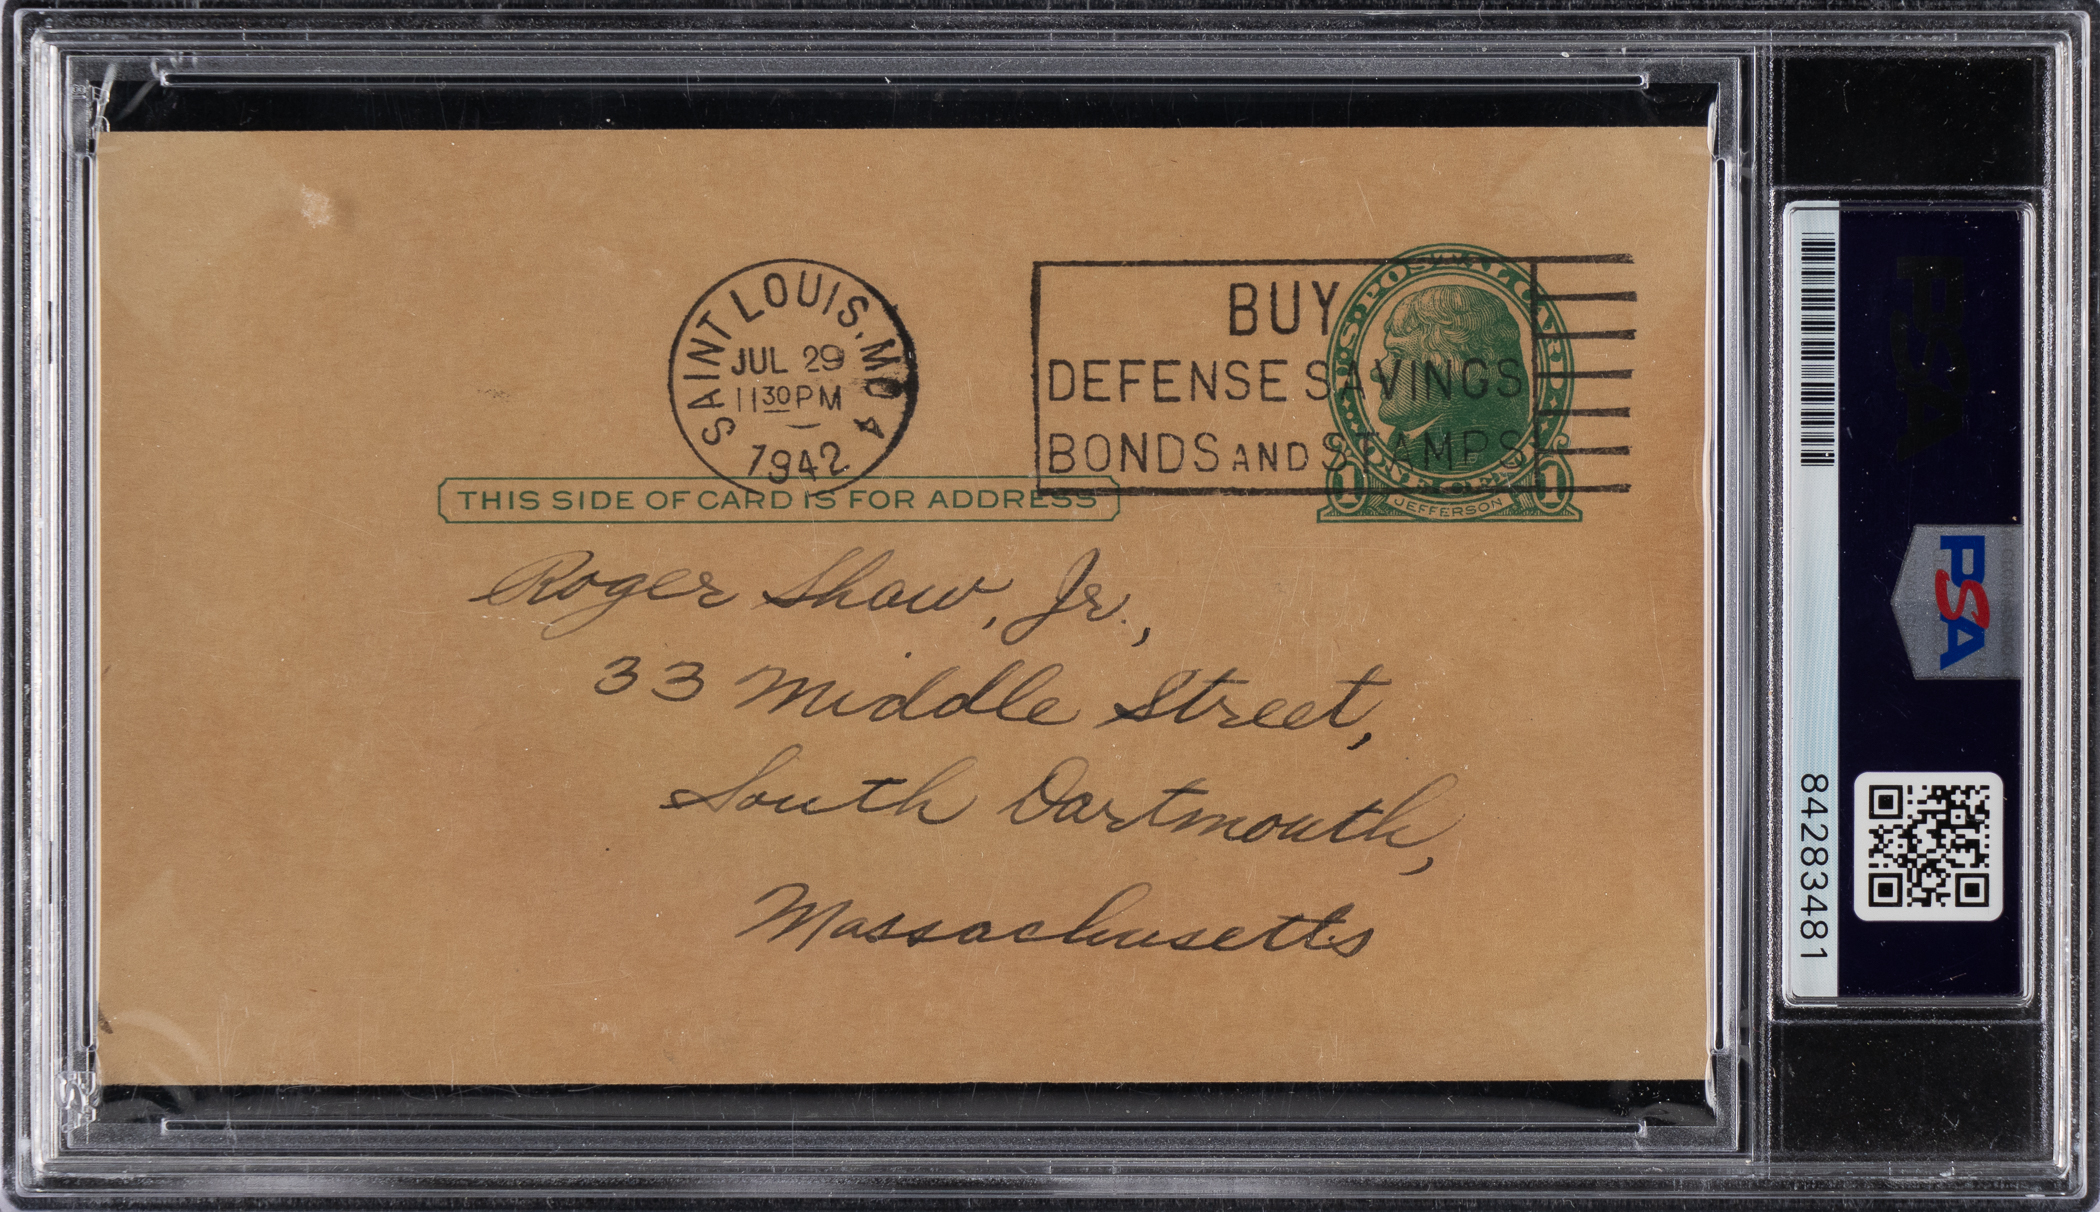 SAINT LOUIS, MO 4
JUL 29
11 30 PM
1942
BUY
DEFENSE SAVINGS
BONDS AND STAMPS
U.S. POSTAL CARD
1 JEFFERSON 1
THIS SIDE OF CARD IS FOR ADDRESS
Roger Shaw, Jr.,
33 Middle Street,
South Dartmouth,
Massachusetts
PSA
PSA
84283481